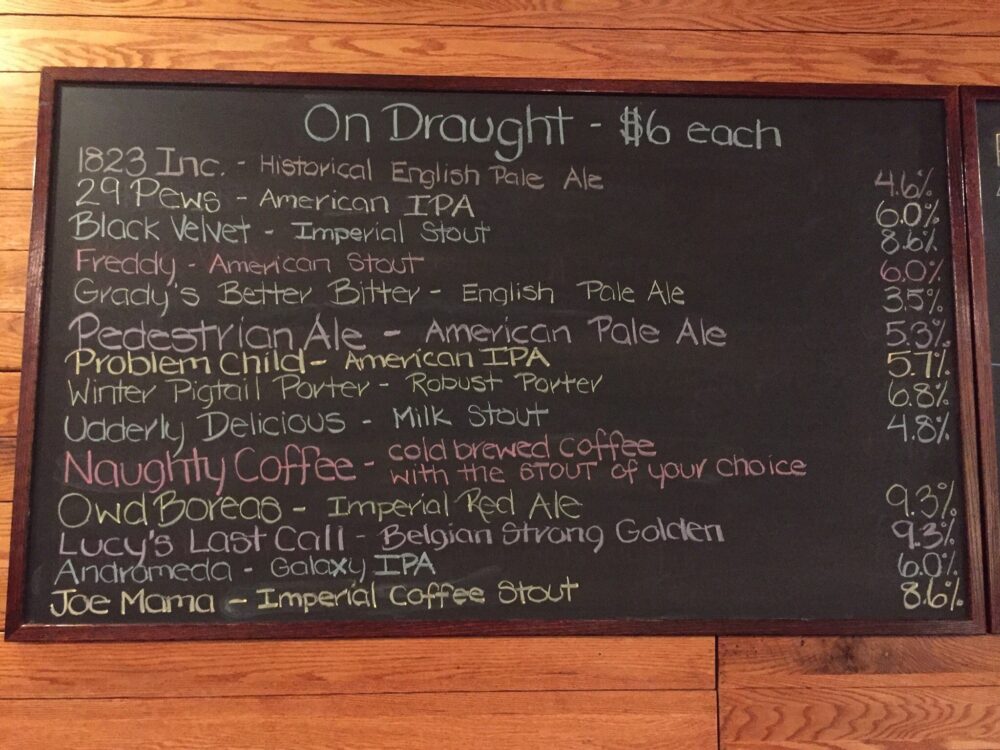 On Draught - $6 each
1823 Inc. - Historical English Pale Ale 4.6%
29 Pews - American IPA 6.0%
Black Velvet - Imperial Stout 8.6%
Freddy - American Stout 6.0%
Grady's Better Bitter - English Pale Ale 3.5%
Pedestrian Ale - American Pale Ale 5.3%
Problem Child - American IPA 5.7%
Winter Pigtail Porter - Robust Porter 6.8%
Udderly Delicious - Milk Stout 4.8%
Naughty Coffee - cold brewed coffee
with the STOUT of your choice
Owd Boreas - Imperial Red Ale 9.3%
Lucy's Last Call - Belgian Strong Golden 9.3%
Andromeda - Galaxy IPA 6.0%
Joe Mama - Imperial Coffee Stout 8.6%